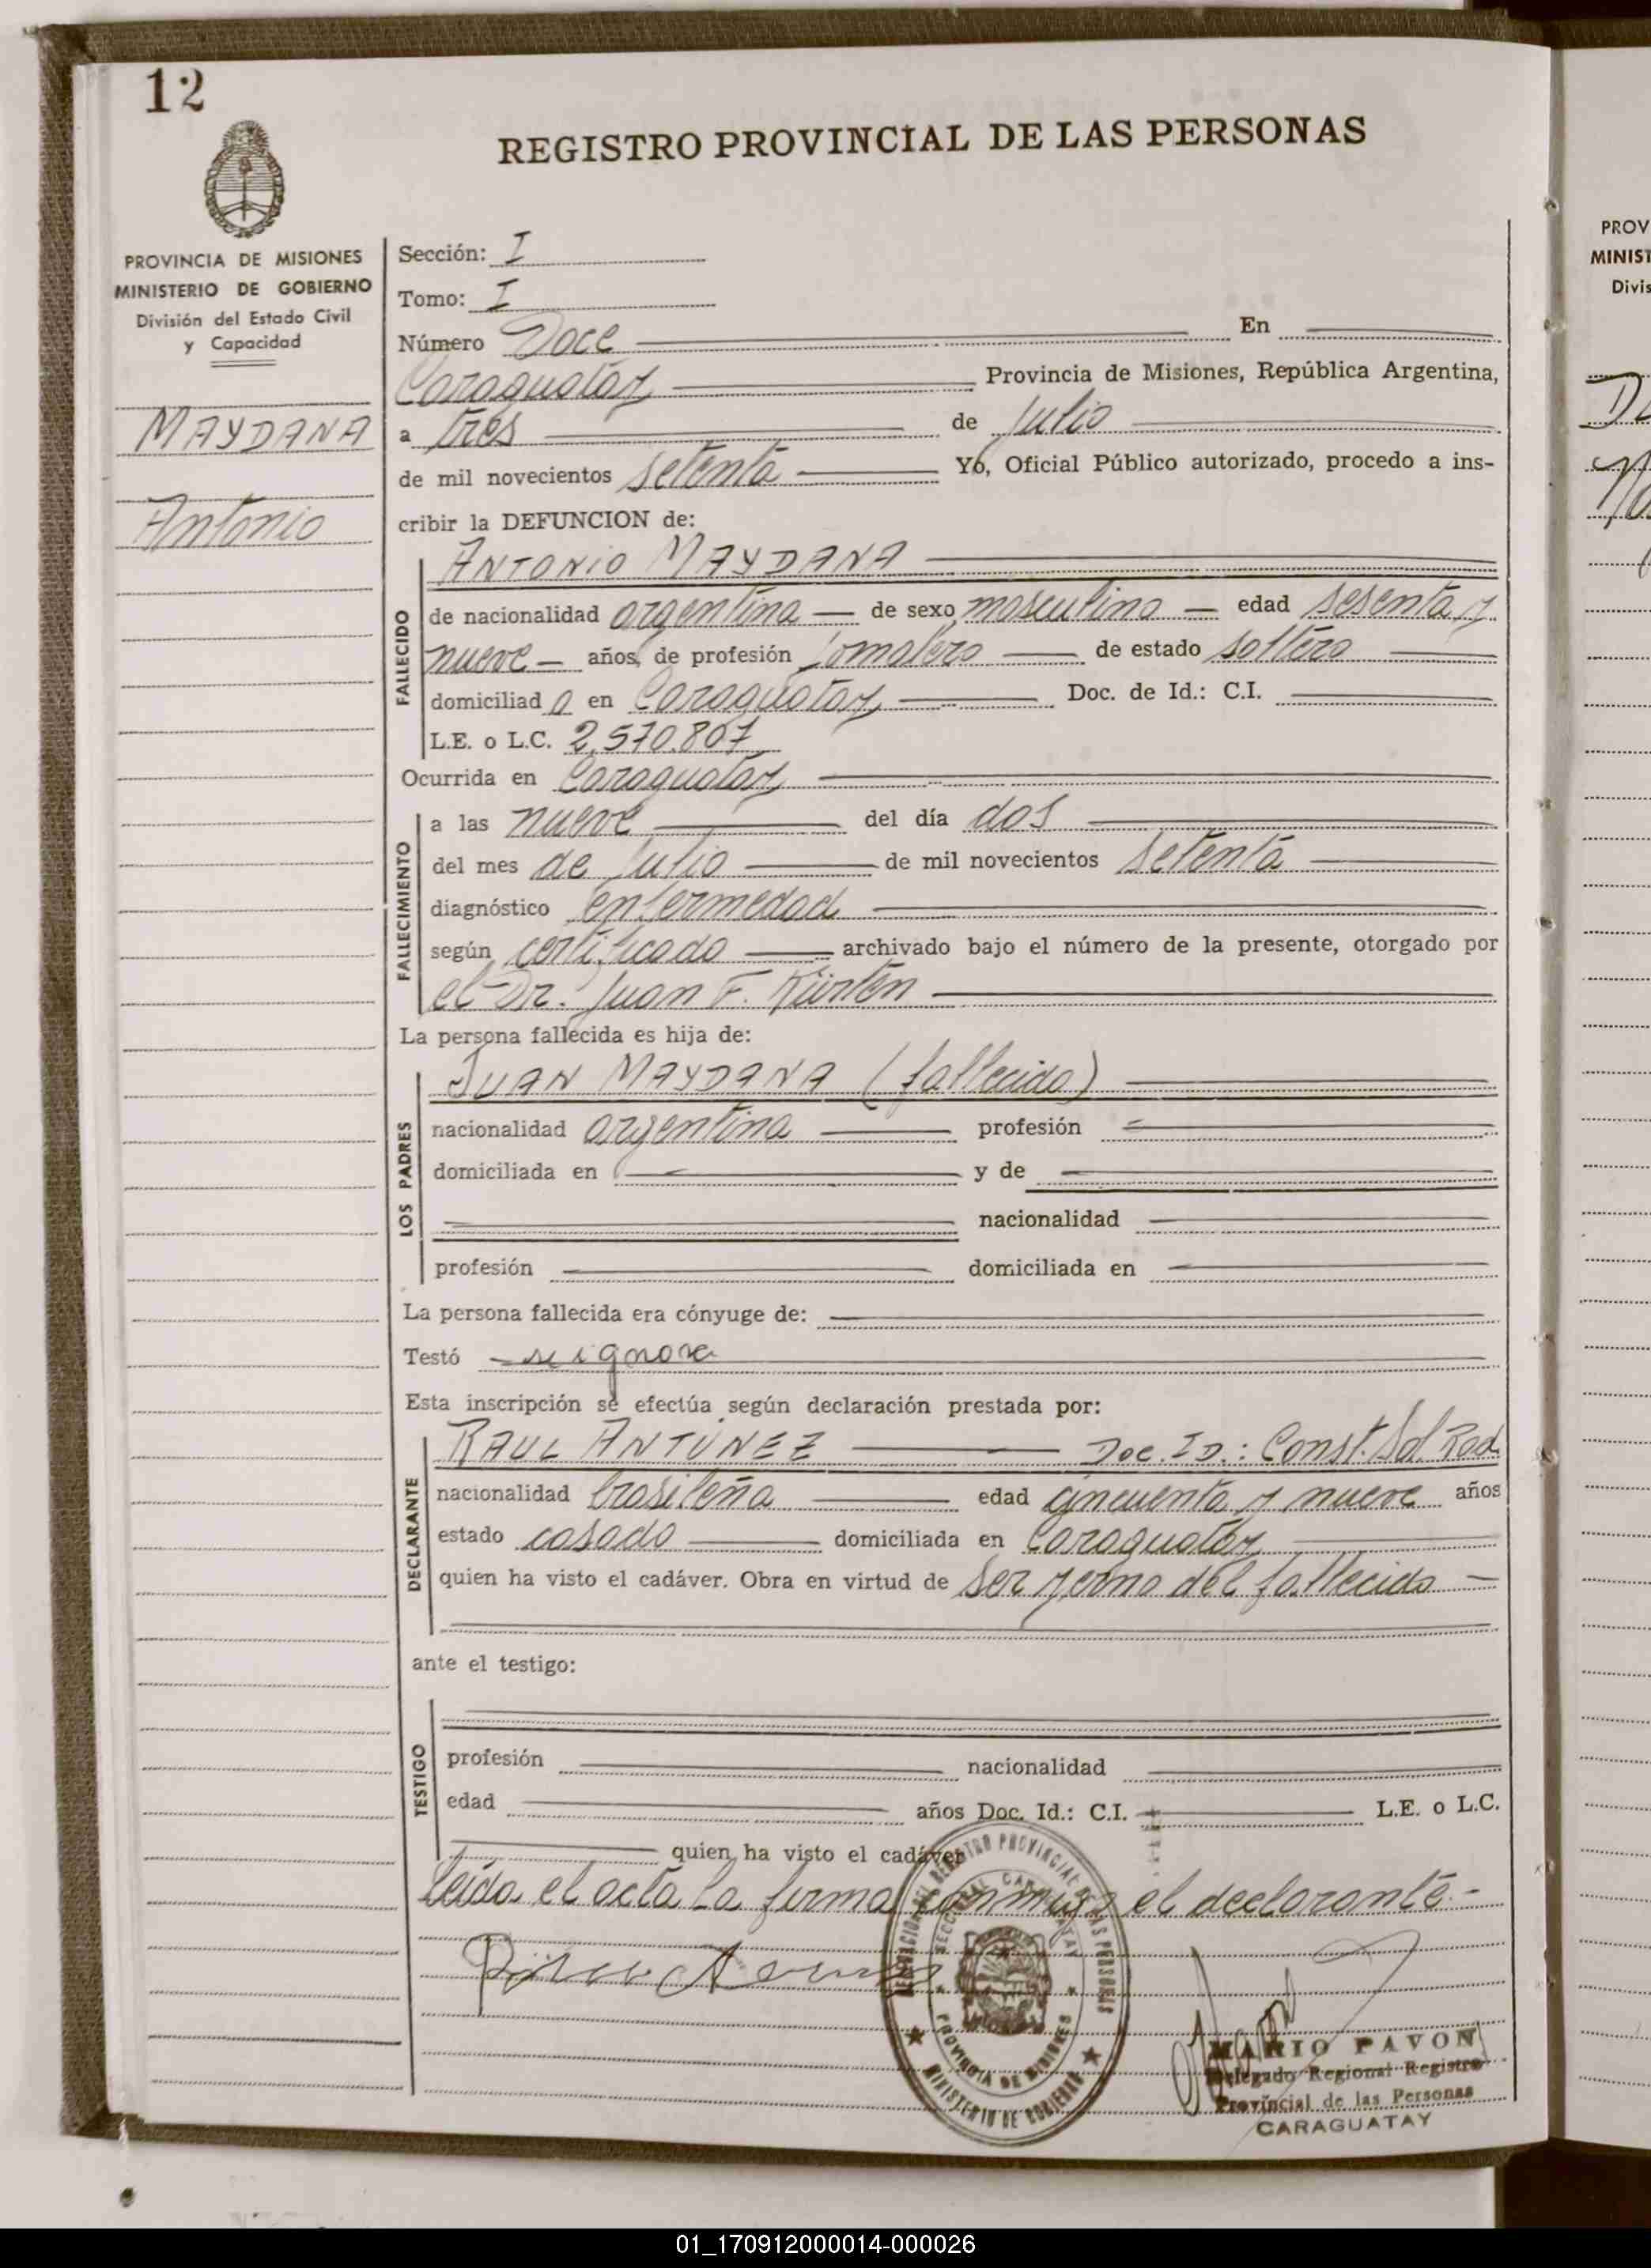 12
REGISTRO PROVINCIAL DE LAS PERSONAS
PROVINCIA DE MISIONES
MINISTERIO DE GOBIERNO
División del Estado Civil
y Capacidad
MAYDANA
Antonio
Sección: I
Tomo: I
Número Doce En
Caraguatay Provincia de Misiones, República Argentina,
a tres de Julio
de mil novecientos setenta Yo, Oficial Público autorizado, procedo a ins-
cribir la DEFUNCION de:
ANTONIO MAYDANA
FALLECIDO
de nacionalidad argentina de sexo masculino edad sesenta y
nueve años, de profesión Jornalero de estado soltero
domiciliad o en Caraguatay Doc. de Id.: C.I.
L.E. o L.C. 2.570.807
Ocurrida en Caraguatay
FALLECIMIENTO
a las nueve del día dos
del mes de Julio de mil novecientos setenta
diagnóstico enfermedad
según certificado archivado bajo el número de la presente, otorgado por
el Dr. Juan F. Kürten
La persona fallecida es hija de:
LOS PADRES
JUAN MAYDANA (fallecido)
nacionalidad argentina profesión
domiciliada en y de
nacionalidad
profesión domiciliada en
La persona fallecida era cónyuge de:
Testó se ignora
Esta inscripción se efectúa según declaración prestada por:
DECLARANTE
RAUL ANTÚNEZ Doc. ID.: Const. Sol. Rad.
nacionalidad brasileña edad cincuenta y nueve años
estado casado domiciliada en Caraguatay
quien ha visto el cadáver. Obra en virtud de ser yerno del fallecido
ante el testigo:
TESTIGO
profesión nacionalidad
edad años Doc. Id.: C.I. L.E. o L.C.
quien ha visto el cadáver
Leida el acta la firma conmigo el declarante.-
DEL REGISTRO PROVINCIAL DE LAS PERSONAS
SECCIONAL CARAGUATAY
PROVINCIA DE MISIONES
MINISTERIO DE GOBIERNO
MARIO PAVON
Delegado Regional Registro
Provincial de las Personas
CARAGUATAY
PROV
MINIST
Divis
01_170912000014-000026